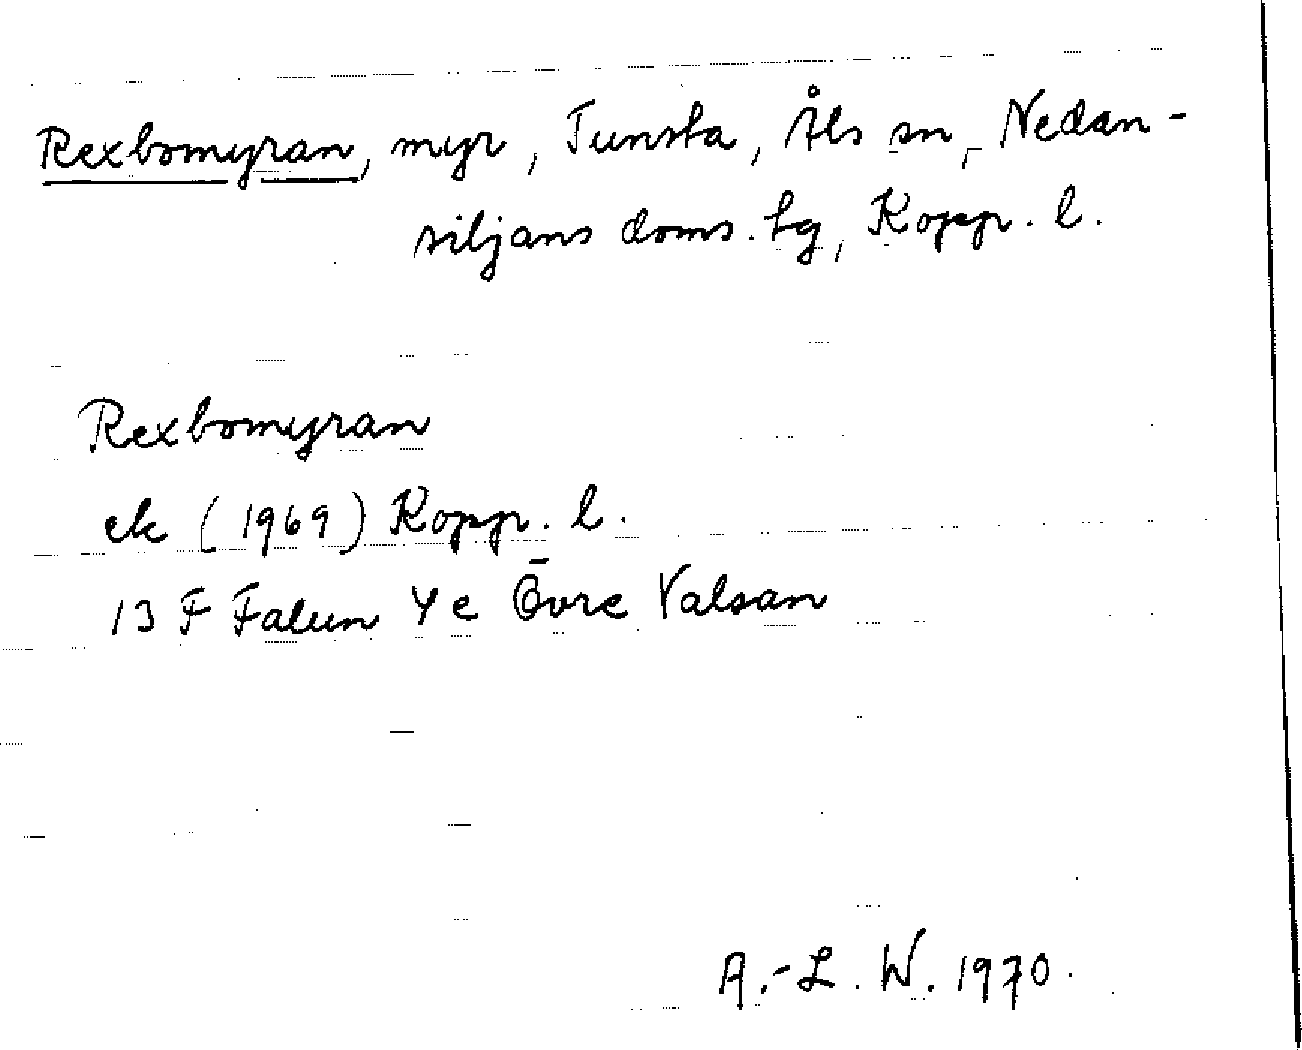 Rexbomyran, myr, Tunsta, Åls sn, Nedan-
siljans doms. hg, Kopp. l.
Rexbomyran
ek (1969) Kopp. l.
13 F Falun 4 e Övre Valsan
A.-L. W. 1970.